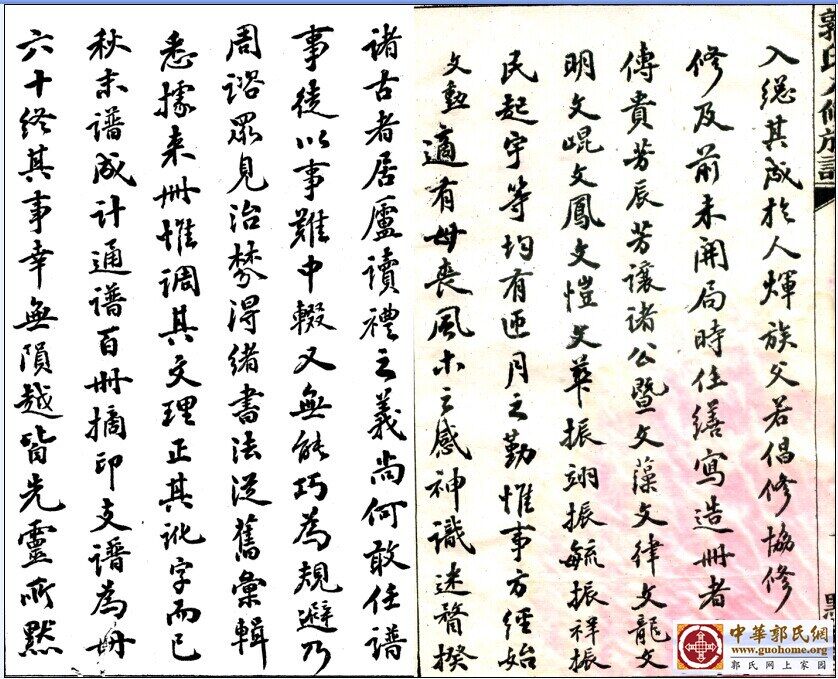 入總其成於人煇族父若倡修協修
修及前未開局時任繕寫造冊者
傳貴芳辰芳讓諸公暨文藻文律文龍文
明文崐文鳳文愷文華振翊振毓振祥振
民起宇等均有匝月之勤惟事方經始
文勳適有母喪風木之感神識迷瞀揆
諸古者居廬讀禮之義尚何敢任譜
事徒以事難中輟又無能巧為規避乃
周諮眾見治棼得緒書法從舊彙輯
悉據来冊惟調其文理正其訛字而已
秋末譜成計通譜百冊摘印支譜為冊
六十終其事幸無隕越皆先靈所默
中華郭氏網
www.guohome.org
郭氏网上家园